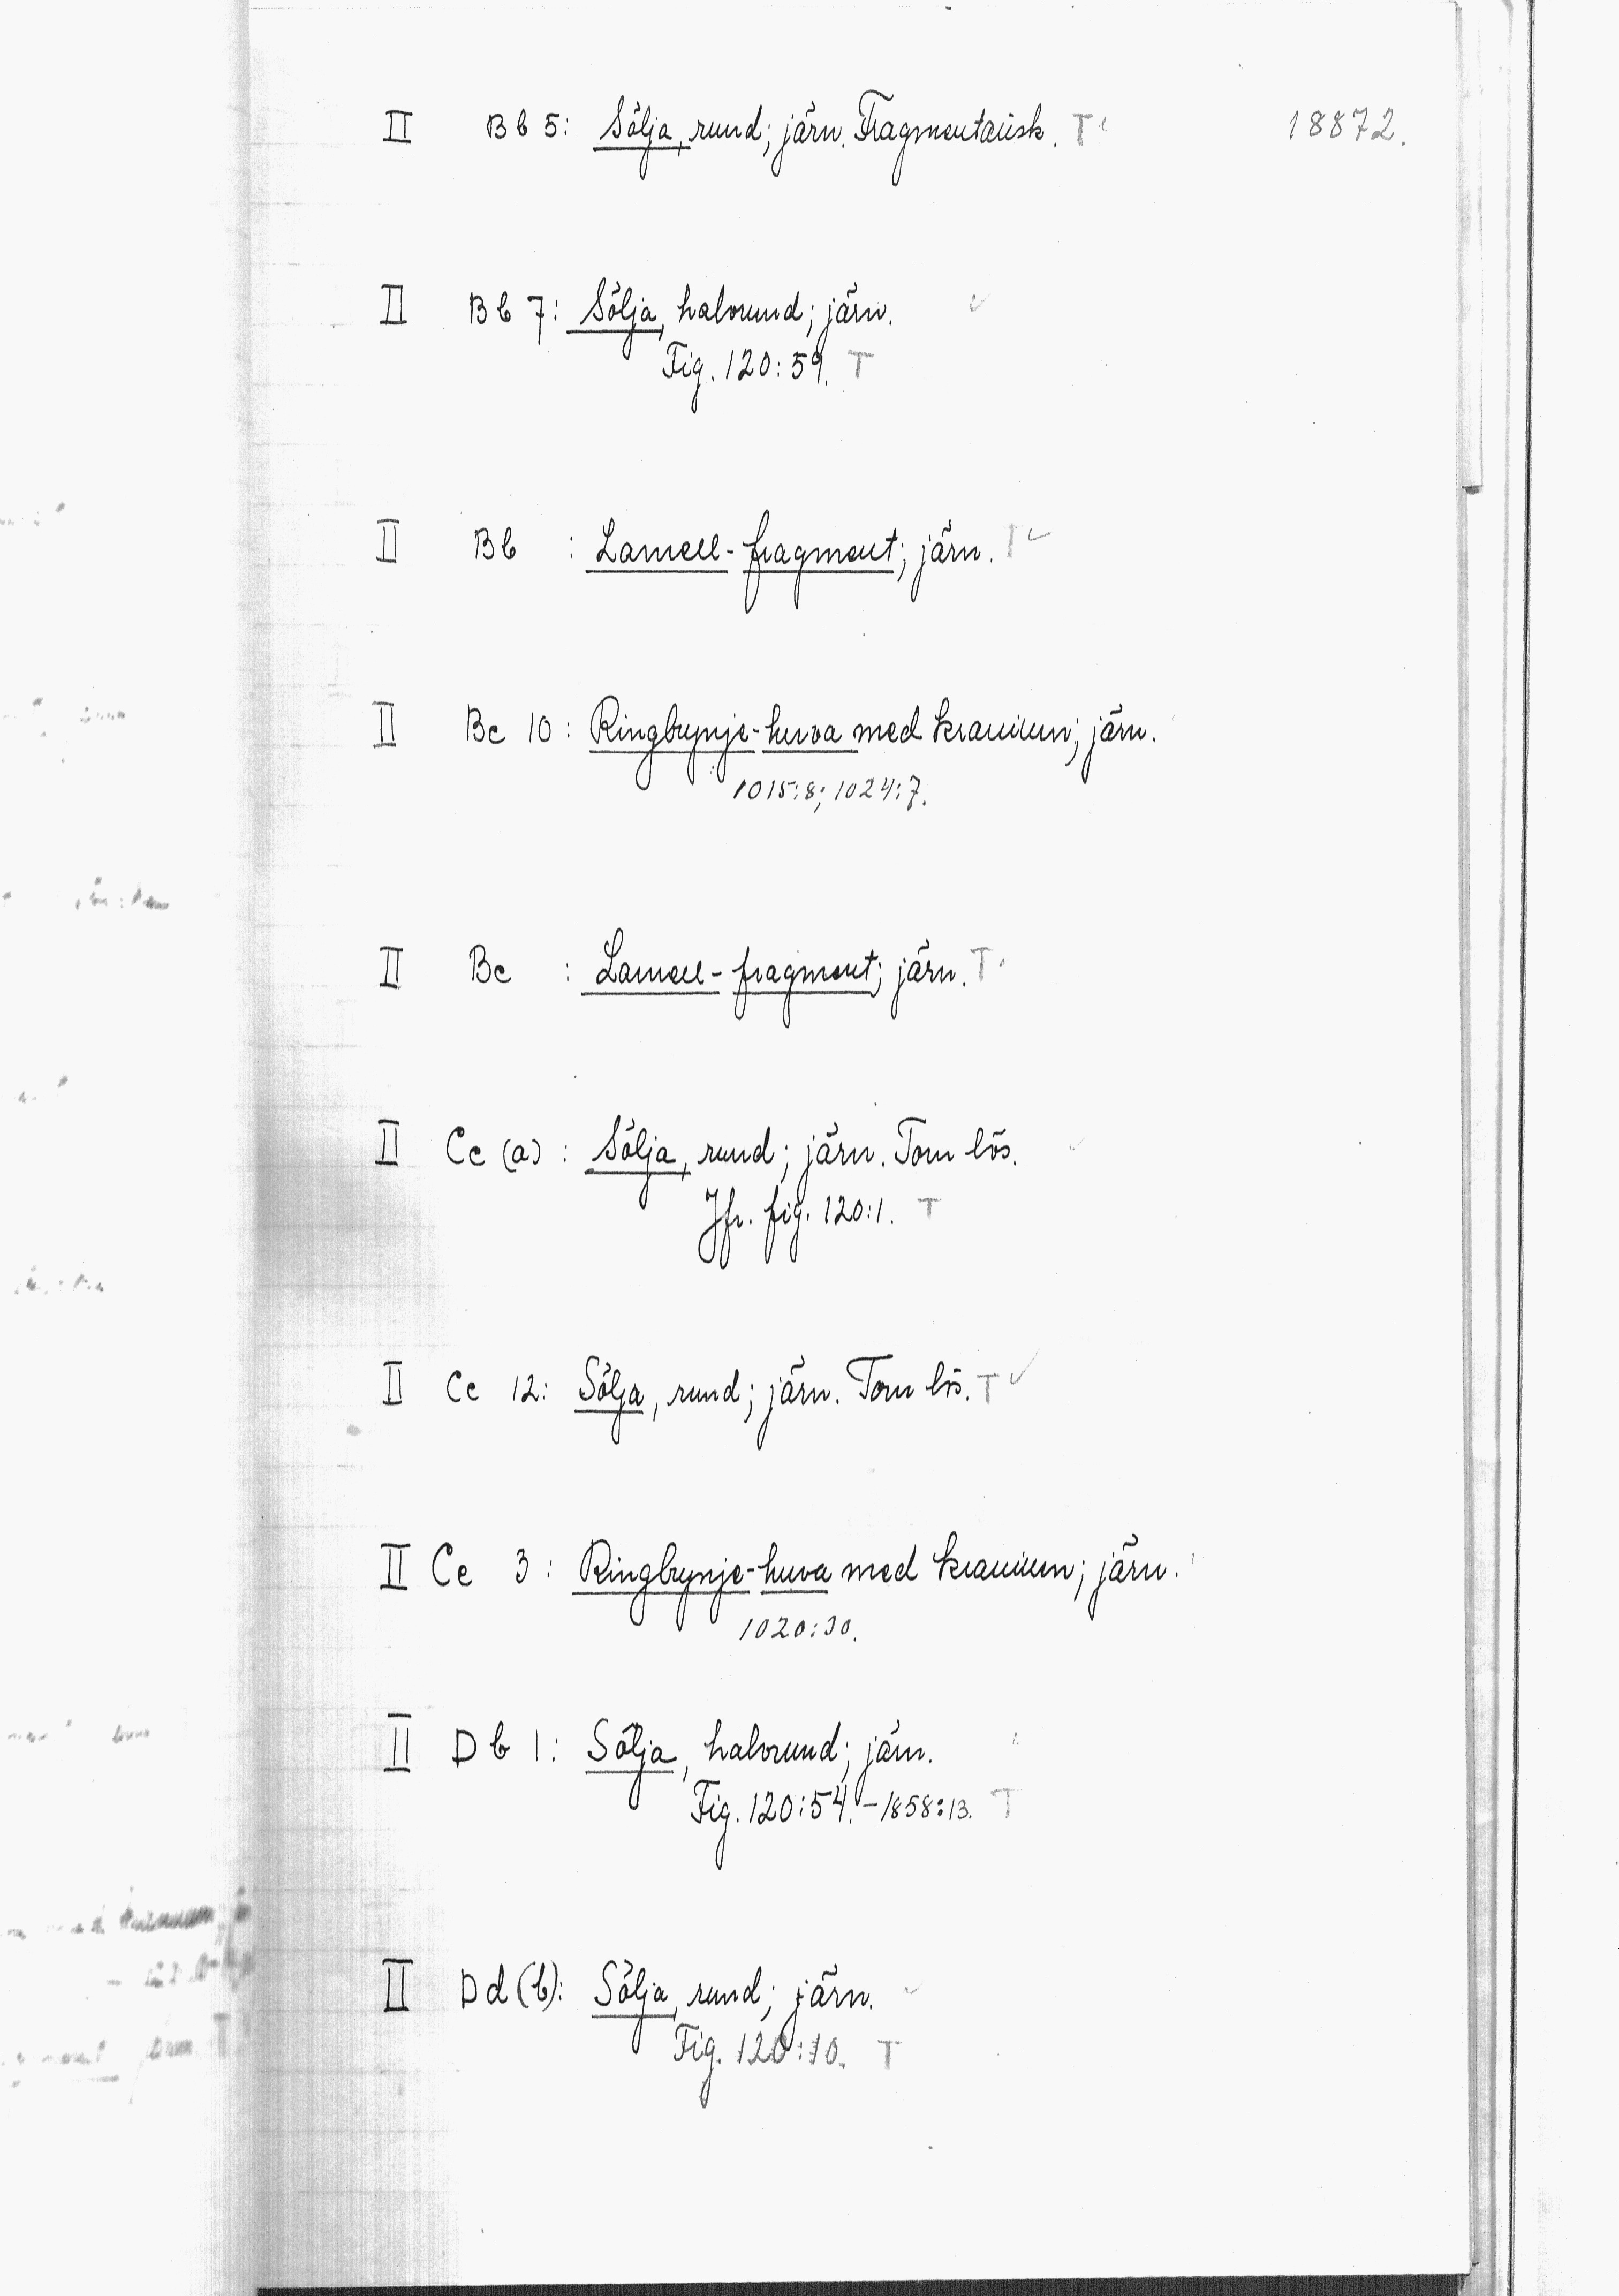 II Bb 5: Sölja, rund; järn. Fragmentarisk. T 18872.
II Bb 7: Sölja, halvrund; järn.
Fig. 120:59. T
II Bb : Lamell-fragment; järn. T
II Bc 10: Ringbrynje-huva med kranium; järn.
1015:8; 1024:7.
II Bc : Lamell-fragment; järn. T
II Cc (a) : Sölja, rund; järn. Torn lös.
Jfr. fig. 120:1. T
II Cc 12: Sölja, rund; järn. Torn lös. T
II Ce 3: Ringbrynje-huva med kranium; järn.
1020:30.
II Db 1: Sölja, halvrund; järn.
Fig. 120:54. – 1858:13. T
II Dd (b): Sölja, rund; järn.
Fig. 120:10. T